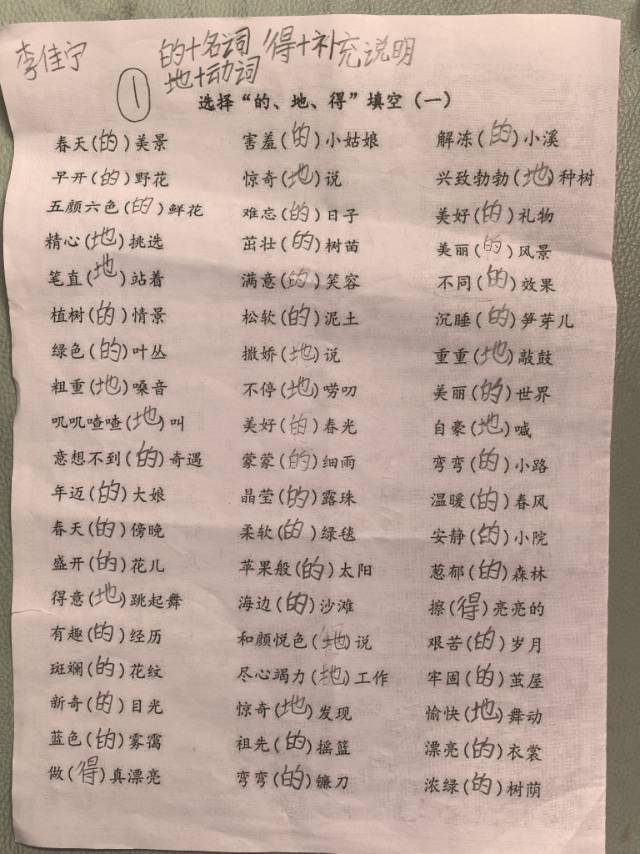 李佳宁
的+名词 得+补充说明
地+动词
① 选择“的、地、得”填空（一）
春天(的)美景 害羞(的)小姑娘 解冻(的)小溪
早开(的)野花 惊奇(地)说 兴致勃勃(地)种树
五颜六色(的)鲜花 难忘(的)日子 美好(的)礼物
精心(地)挑选 茁壮(的)树苗 美丽(的)风景
笔直(地)站着 满意(的)笑容 不同(的)效果
植树(的)情景 松软(的)泥土 沉睡(的)笋芽儿
绿色(的)叶丛 撒娇(地)说 重重(地)敲鼓
粗重(地)嗓音 不停(地)唠叨 美丽(的)世界
叽叽喳喳(地)叫 美好(的)春光 自豪(地)喊
意想不到(的)奇遇 蒙蒙(的)细雨 弯弯(的)小路
年迈(的)大娘 晶莹(的)露珠 温暖(的)春风
春天(的)傍晚 柔软(的)绿毯 安静(的)小院
盛开(的)花儿 苹果般(的)太阳 葱郁(的)森林
得意(地)跳起舞 海边(的)沙滩 擦(得)亮亮的
有趣(的)经历 和颜悦色(地)说 艰苦(的)岁月
斑斓(的)花纹 尽心竭力(地)工作 牢固(的)茧屋
新奇(的)目光 惊奇(地)发现 愉快(地)舞动
蓝色(的)雾霭 祖先(的)摇篮 漂亮(的)衣裳
做(得)真漂亮 弯弯(的)镰刀 浓绿(的)树荫